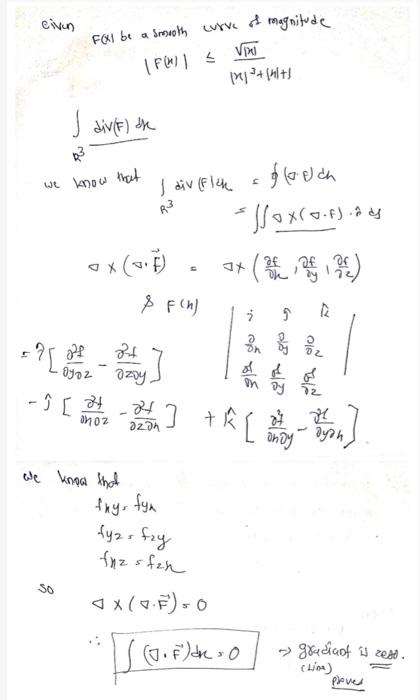 Given F(x) be a smooth curve of magnitude
|F(x)| ≤ √|x| / (|x|³+|x|+1)
∫ div(F) dx
R³
we know that ∫ div(F)dx = ∮ (∇·F) dx
R³
= ∬ ∇×(∇·F)·n̂ ds
∇×(∇·F⃗) = ∇×(∂f/∂x, ∂f/∂y, ∂f/∂z)
& F(x) | i ĵ k̂
∂/∂x ∂/∂y ∂/∂z
∂f/∂x ∂f/∂y ∂f/∂z |
= î [∂²f/∂y∂z − ∂²f/∂z∂y]
− ĵ [∂²f/∂x∂z − ∂²f/∂z∂x] + k̂ [∂²f/∂x∂y − ∂²f/∂y∂x].
we know that
fxy = fyx
fyz = fzy
fxz = fzx
so
∇×(∇·F⃗) = 0
∴ ∫(∇·F⃗)dx = 0 → gradient is zero.
(Line)
proved